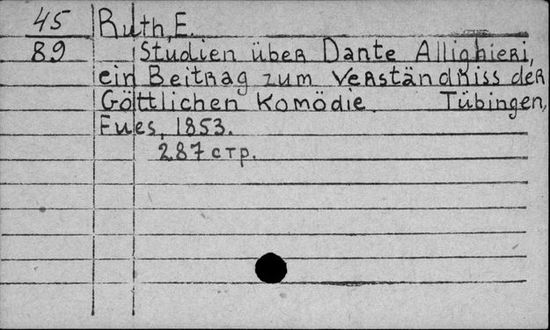 45 Ruth, E.
89 Studien über Dante Allighieri,
ein Beitrag zum Verständniss der
Göttlichen Komödie. Tübingen,
Fues, 1853.
287 стр.